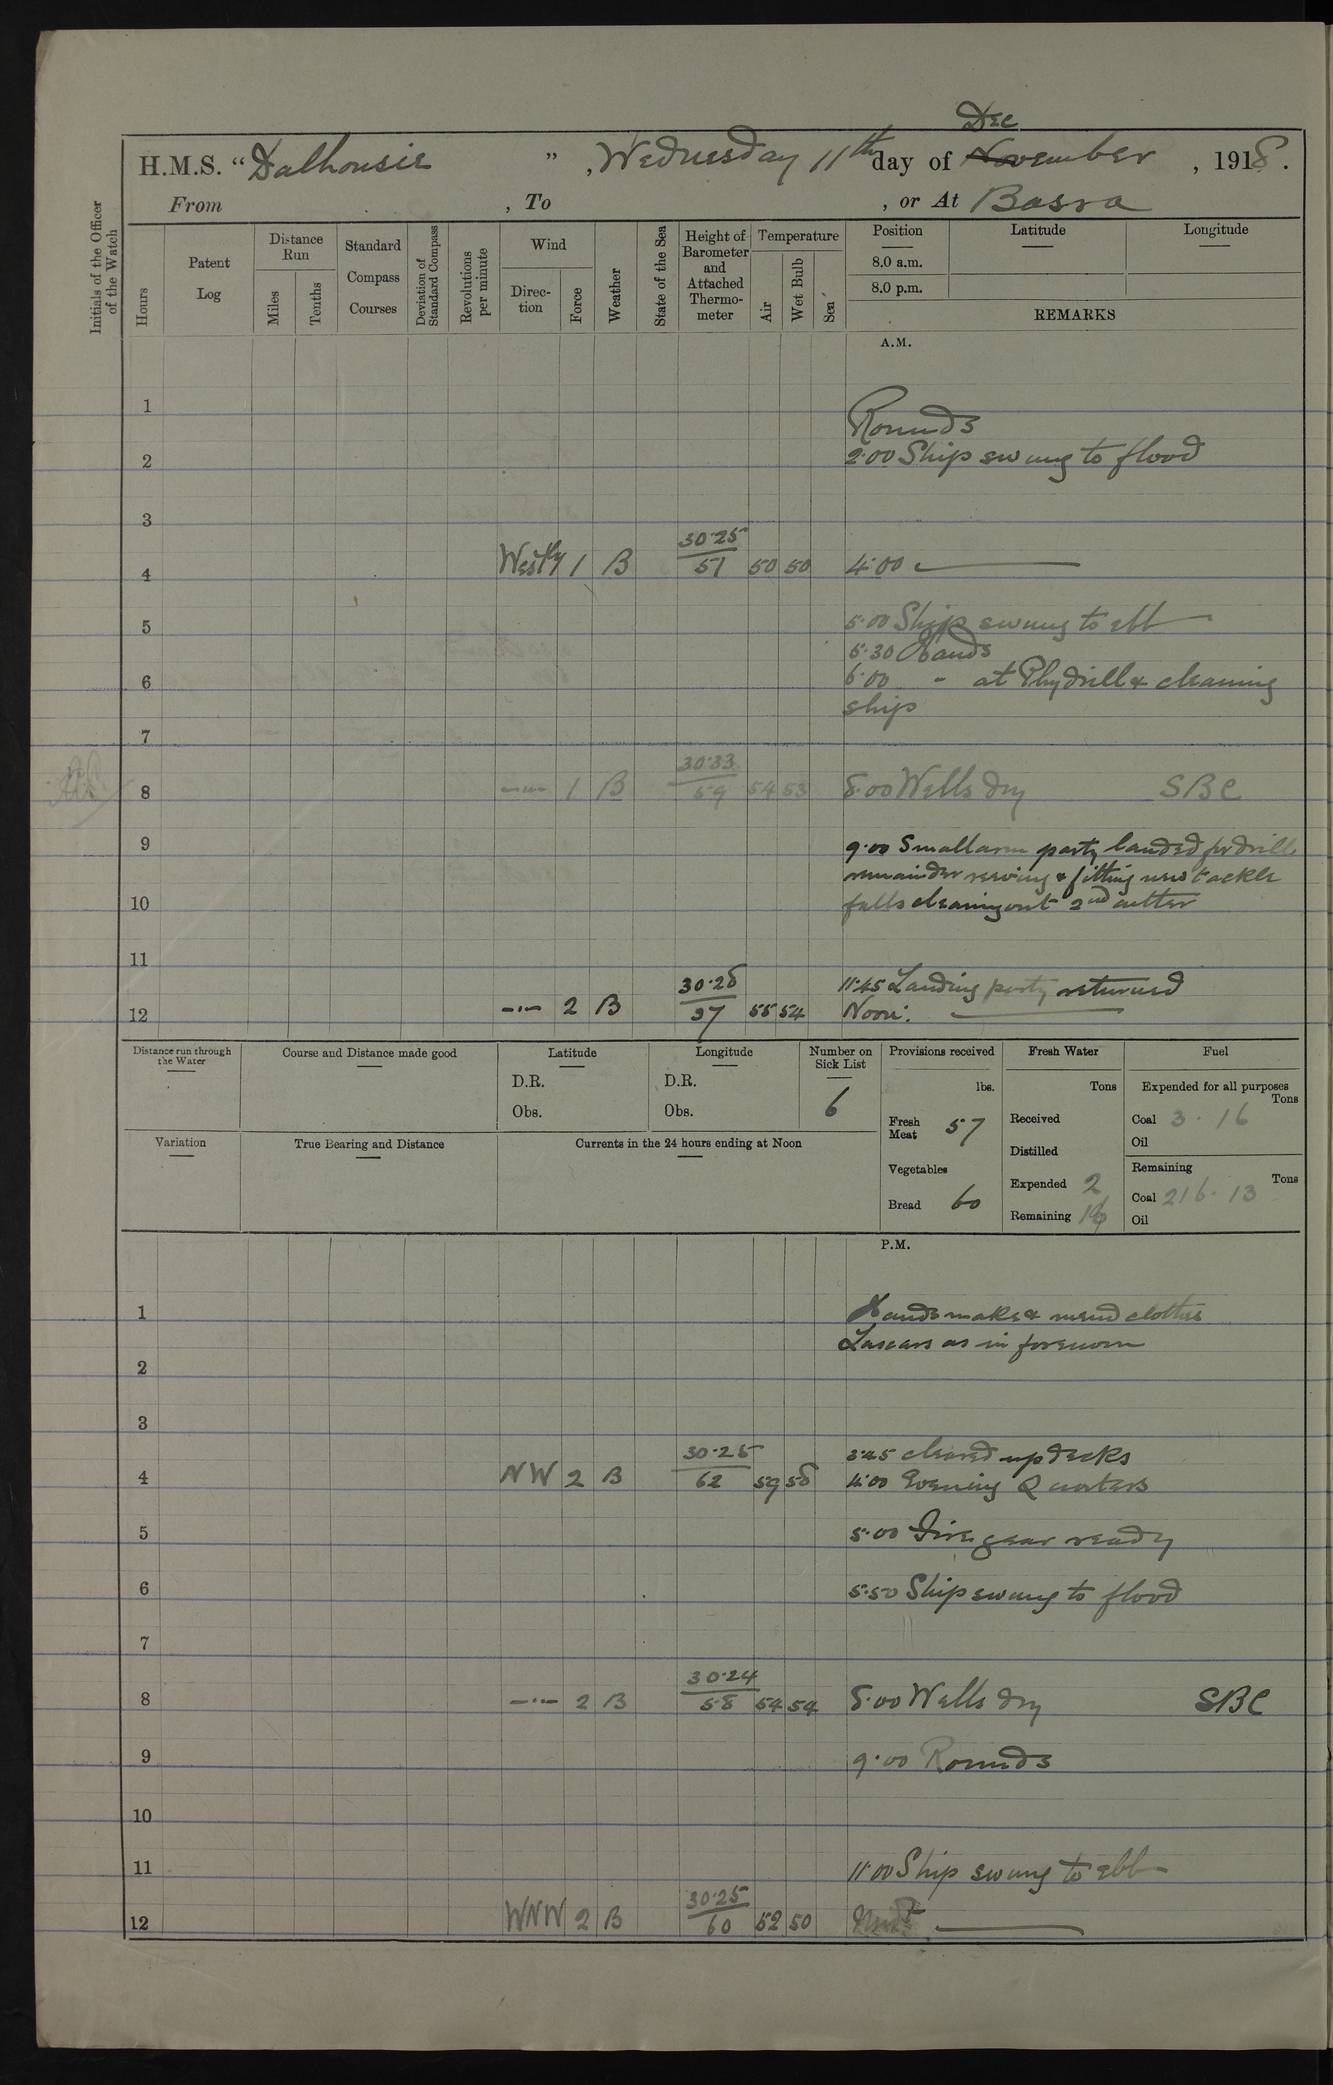 Dec
H.M.S. "Dalhousie", Wednesday 11th day of November, 1918.
From , To , or At Basra
Initials of the Officer of the Watch
Hours
Patent Log
Distance Run
Miles
Tenths
Standard Compass Courses
Deviation of Standard Compass
Revolutions per minute
Wind
Direction
Force
Weather
State of the Sea
Height of Barometer and Attached Thermometer
Temperature
Air
Wet Bulb
Sea
Position
8.0 a.m.
8.0 p.m.
Latitude
Longitude
REMARKS
A.M.
1
Rounds
2 2.00 Ship swung to flood
3
4 Westly 1 B 30.25 51 50 50 4.00 —
5 5.00 Ship swung to ebb
5.30 Hands
6 6.00 " at Phy drill & cleaning
ship
7
8 -"- 1 B 30.33 59 54 53 8.00 Wells dry SBC
9 9.00 Small arm party landed for drill
remainder reeving & fitting new tackle
10 falls cleaning out 2nd cutter
11
11.45 Landing party returned
12 -"- 2 B 30.28 57 55 54 Noon. —
Distance run through the Water
Course and Distance made good
Latitude
D.R.
Obs.
Longitude
D.R.
Obs.
Number on Sick List
6
Provisions received
lbs.
Fresh Meat 57
Vegetables
Bread 60
Fresh Water
Tons
Received
Distilled
Expended 2
Remaining
Fuel
Expended for all purposes
Tons
Coal 3.16
Oil
Remaining
Tons
Coal 216.13
Oil
Variation
True Bearing and Distance
Currents in the 24 hours ending at Noon
P.M.
1 Hands make & mend clothes
Lascars as in forenoon
2
3
3.45 cleared up decks
4 NW 2 B 30.25 62 59 58 4.00 Evening Quarters
5 5.00 Fire gear ready
6 5.50 Ship swung to flood
7
8 -"- 2 B 30.24 58 54 54 8.00 Wells dry SBC
9 9.00 Rounds
10
11 11.00 Ship swung to ebb
12 WNW 2 B 30.25 60 52 50 Midt —